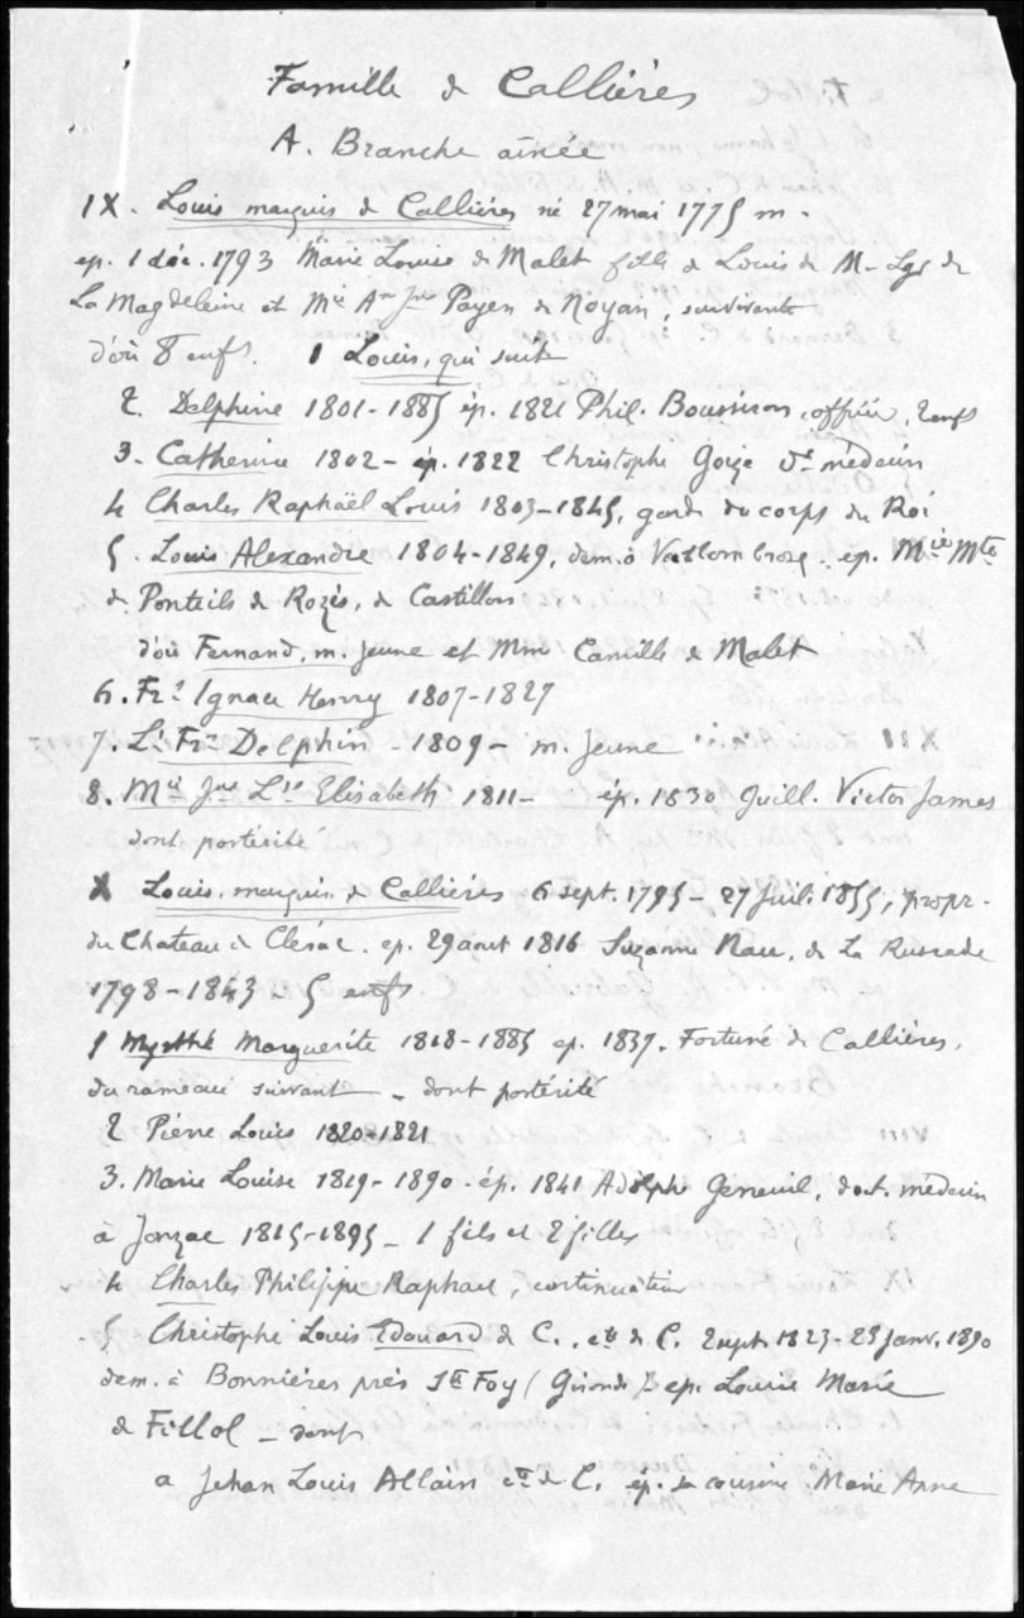 Famille de Callières
A. Branche aînée
IX. Louis marquis de Callières né 27 mai 1775 m.
ep. 1 déc. 1793 Marie Louise de Malet fille de Louis de M- Sgr de
La Magdeleine et Mie Ane Jne Payen de Noyan, survivante
d'où 8 enfts. 1 Louis, qui suit
2. Delphine 1801-1885 ép. 1821 Phil. Boussiron, officier, 2 enfts
3. Catherine 1802 - ép. 1822 Christophe Goize Dr médecin
4 Charles Raphaël Louis 1803-1845, garde du corps du Roi
5. Louis Alexandre 1804-1849, dem. à Vallombrose. ep. Mie Mte
de Ponteils de Rozès, de Castillon
d'où Fernand, m. jeune et Mme Camille de Malet
6. Frs Ignace Henry 1807-1827
7. Ls Frs Delphin - 1809 - m. jeune
8. Mie Jne Lse Elisabeth 1811- ép. 1830 Guill. Victor James
dont postérité
X Louis. marquis de Callières 6 sept. 1795 - 27 Juil. 1855, propr.
du Chateau de Clérac. ep. 29 aout 1816 Suzanne Nau, de La
1798-1843 - 5 enfts
1 Myrthé Marguerite 1818-1885 ep. 1837. Fortuné de Callières,
du rameau suivant - dont postérité
2 Pierre Louis 1820-1821
3. Marie Louise 1819-1890. ép. 1841 Adolphe Geneuil, doct. médecin
à Jonzac 1815-1895 - 1 fils et 2 filles
4 Charles Philippe Raphael, continuateur
5 Christophe Louis Edouard de C., cte de C. 2 sept. 1823-23 Janv. 1890
dem. à Bonnières près Ste Foy (Gironde). ep. Louise Marie
de Fillol - dont
a Jehan Louis Allain cte de C. ép. sa cousine Marie Anne